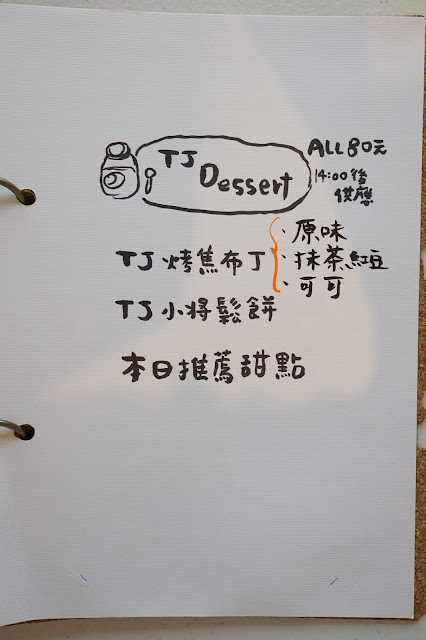 TJ Dessert
ALL 80元
14:00後
供應
TJ 烤焦布丁
・原味
・抹茶紅豆
・可可
TJ 小將鬆餅
本日推薦甜點